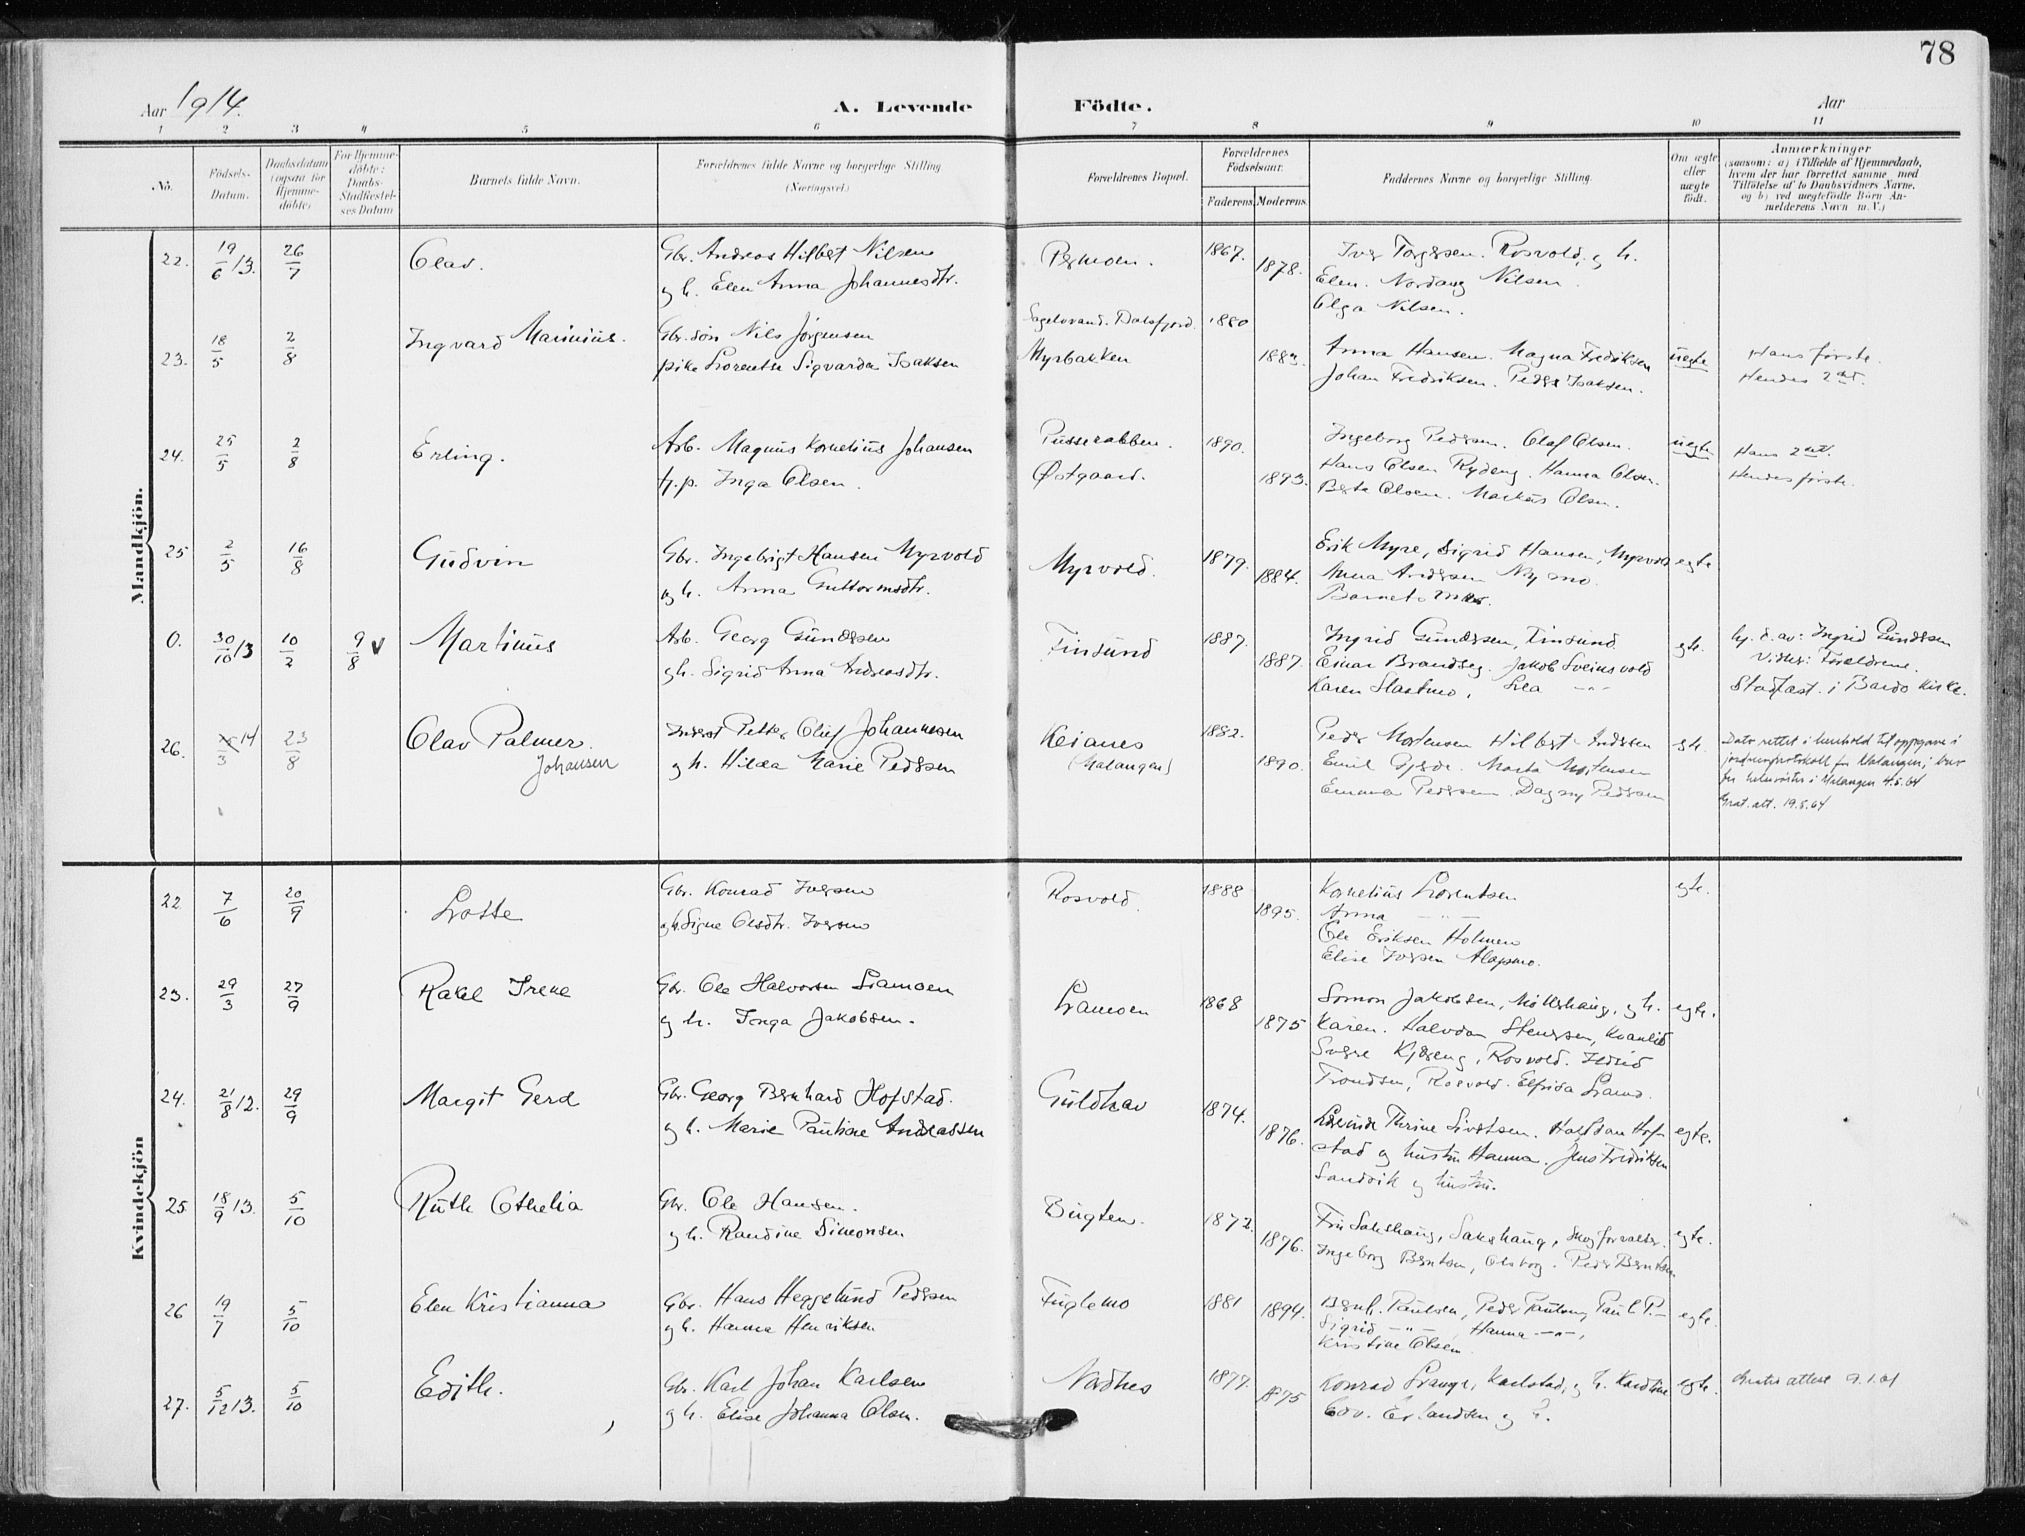 78
Aar 1914. A. Levende Födte. Aar
1 2 3 4 5 6 7 8 9 10 11
No. Födsels-Datum. Daabsdatum (ogsaa for Hjemme-döbte) For Hjemme-döbte: Daabs-Stadfæstel-ses Datum Barnets fulde Navn. Forældrenes fulde Navne og borgerlige Stilling (Næringsvei.) Forældrenes Bopæl. Forældrenes Födselsaar. Faderens Moderens Faddernes Navne og borgerlige Stilling. Om ægte eller uægte födt. Anmærkninger (saasom: a) i Tilfælde af Hjemmedaab, hvem der har forrettet samme med Tilföielse af to Daabsvidners Navne, og b) ved uægtefödte Börn An-melderens Navn m.V.)
Mandkjön.
22. 19/6 13. 26/7 Olav. Gbr. Andreas Hilbert Nilsen Bermoen. 1867. Iver Torgersen. Rosvold, og h.
og h. Elen Anna Johannesdtr. 1878. Elen. Nordang Nilsen.
Olga Nilsen.
23. 18/5 2/8 Ingvard Marinius. Gbr. søn Nils Jørgensen Sagelvvand. Balsfjord. 1880
pike Lorentse Sigvarda Isaksen Myrbakken 1883. Anna Hansen. Magna Fredriksen uegte Hans første.
Johan Fredriksen. Peder Isaksen. Hendes 2det.
24. 25/5 2/8 Erling. Arb. Magnus Kornelius Johansen Pusserabben. 1890. Ingeborg Pedersen. Olaf Olsen. uegte Hans 2det.
tj.p. Inga Olsen. Østgaard. 1893. Hans Olsen Rydeng. Hanna Olsen. Hendes første.
Berta Olsen. Markus Olsen.
25 2/5 16/8 Gudvin Gbr. Ingebrigt Hansen Myrvold Myrvold. 1879. Erik Myre, Sigrid Hansen, Myrvold egte
og h. Anna Guttormsdtr. 1884. Anna Andersen Nymo.
Barnets Mor.
0. 30/10 13 10/2 9/8 v Martinus Arb. Georg Gundersen Finsund 1887. Ingrid Gundersen, Finsund egte. hj. d. av: Ingrid Gundersen
og h. Sigrid Anna Andreasdtr. 1887. Einar Brandseg. Jakob Sveinsvold Vidner: Forældrene.
Karen Slaatmo, Lea -"- Stadfæst. i Bardo Kirke.
26. 14/3 23/8 Olav Palmer. Johansen Inderst Petter Oluf Johannesen Keianes 1882. Peder Mortensen Hilbert Andersen egte. Dato rettet i henhold til oppgave i
og h. Hilda Marie Pedersen (Malangen) 1890. Emil Gjerde. Marta Mortensen jordmorprotokoll for Malangen, hos
Emma Pedersen. Dagny Pedersen i Malangen 4.5.64
Grat. att. 19.5.64
Kvindekjön
22 7/6 20/9 Lotte Gbr. Konrad Iversen Rosvold. 1888 Kornelius Lorentsen egte.
og h. Signe Olsdtr. Iversen 1895. Anna -"-
Ole Eriksen Holmen
Elise Iversen Alapmo.
23. 29/3 27/9 Rakel Irene Gbr. Ole Halvorsen Liamoen Liamoen 1868 Simon Jakobsen, Mollerhaug, og h. egte.
og h. Inga Jakobsen. 1875 Karen. Halvdan Stenersen, Kvanlid
Sverre Kjæreng, Rosvold.
Trondsen, Rosvold. Elfrida
24. 21/8 12. 29/9 Margit Gerd Gbr. Georg Bernhard Hofstad. Guldhav 1874.
og h. Marie Pauline Andreassen 1876. Thrine Sivertsen. Halfdan Hof- egte.
stad og hustru Hanna. Jens Fredriksen
Sandvik og hustru.
25 18/9 13. 5/10 Ruth Othelia Gbr. Ole Hansen. Bugten. 1872. Fru Sakshaug, Sakshaug, skogforvalter. egte.
og h. Randine Simonsen 1876. Ingeborg Berntsen, Olsborg. Peder Berntsen
26 19/7 5/10 Elen Kristianna Gbr. Hans Heggelund Pedersen Fuglemo 1881 1894. Bernh. Paulsen, Peder Paulsen, Paul P.- egte.
og h. Hanna Henriksen Sigrid -"-, Hanna -"-,
Kristine Olsen
27. 5/12 13. 5/10 Edith. Gbr. Karl Johan Karlsen Nordnes 1877. Konrad Karlstad, og h. Karoline egte. Gratis attest 9.1.61
og h. Elise Johanna Olsen. 1875 Edv. Erlandsen og h.